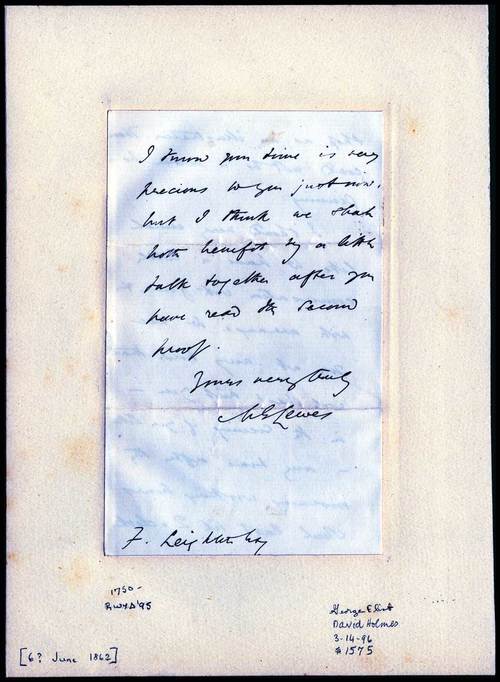 I know your time is very
precious to you just now,
but I think we shall
both benefit by a little
talk together after you
have read the second
proof.
Yours very truly
M E Lewes
F. Leighton Esq
1750-
George Eliot
David Holmes
3-14-96
$1575
[6? June 1862]